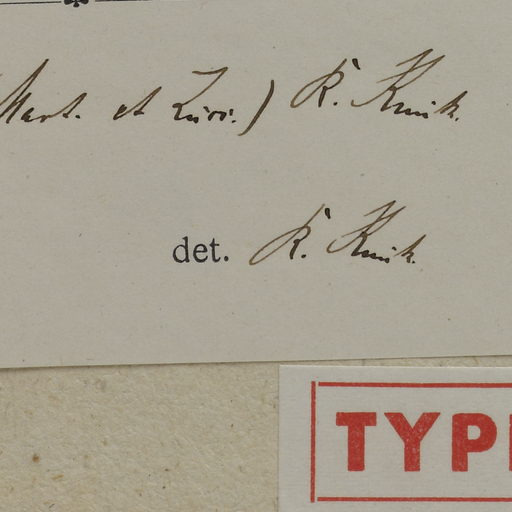 Mart. et Zucc.) R. Knuth.
det. R. Knuth.
TYP